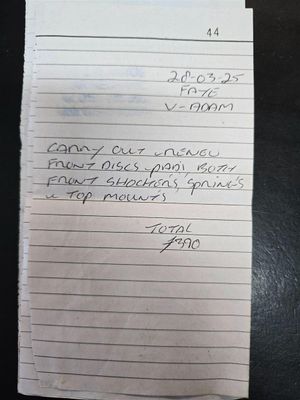 44
28-03-25
FAYE
V-ADAM
CARRY OUT & RENEW
FRONT DISCS, PADS, BOTH
FRONT SHOCKERS, SPRINGS
& TOP MOUNTS
TOTAL
£390